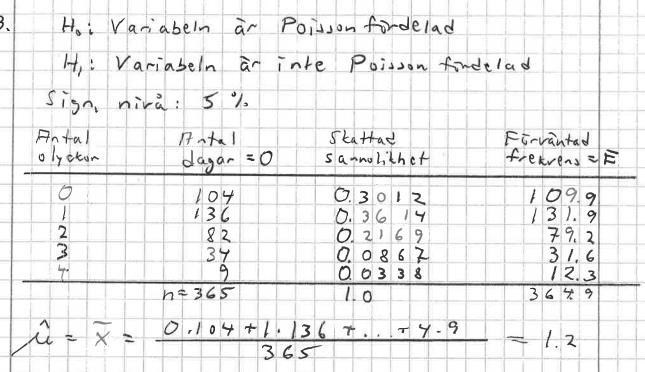 3. H₀: Variabeln är Poisson fördelad
H₁: Variabeln är inte Poisson fördelad
Sign. nivå: 5 %
Antal olyckor Antal dagar = O Skattad sannolikhet Förväntad frekvens = E
0 104 0.3012 109.9
1 136 0.3614 131.9
2 82 0.2169 79.2
3 34 0.0867 31.6
4 9 0.0338 12.3
n = 365 1.0 364.9
μ̂ = x̄ = (0·104 + 1·136 + ... + 4·9) / 365 = 1.2